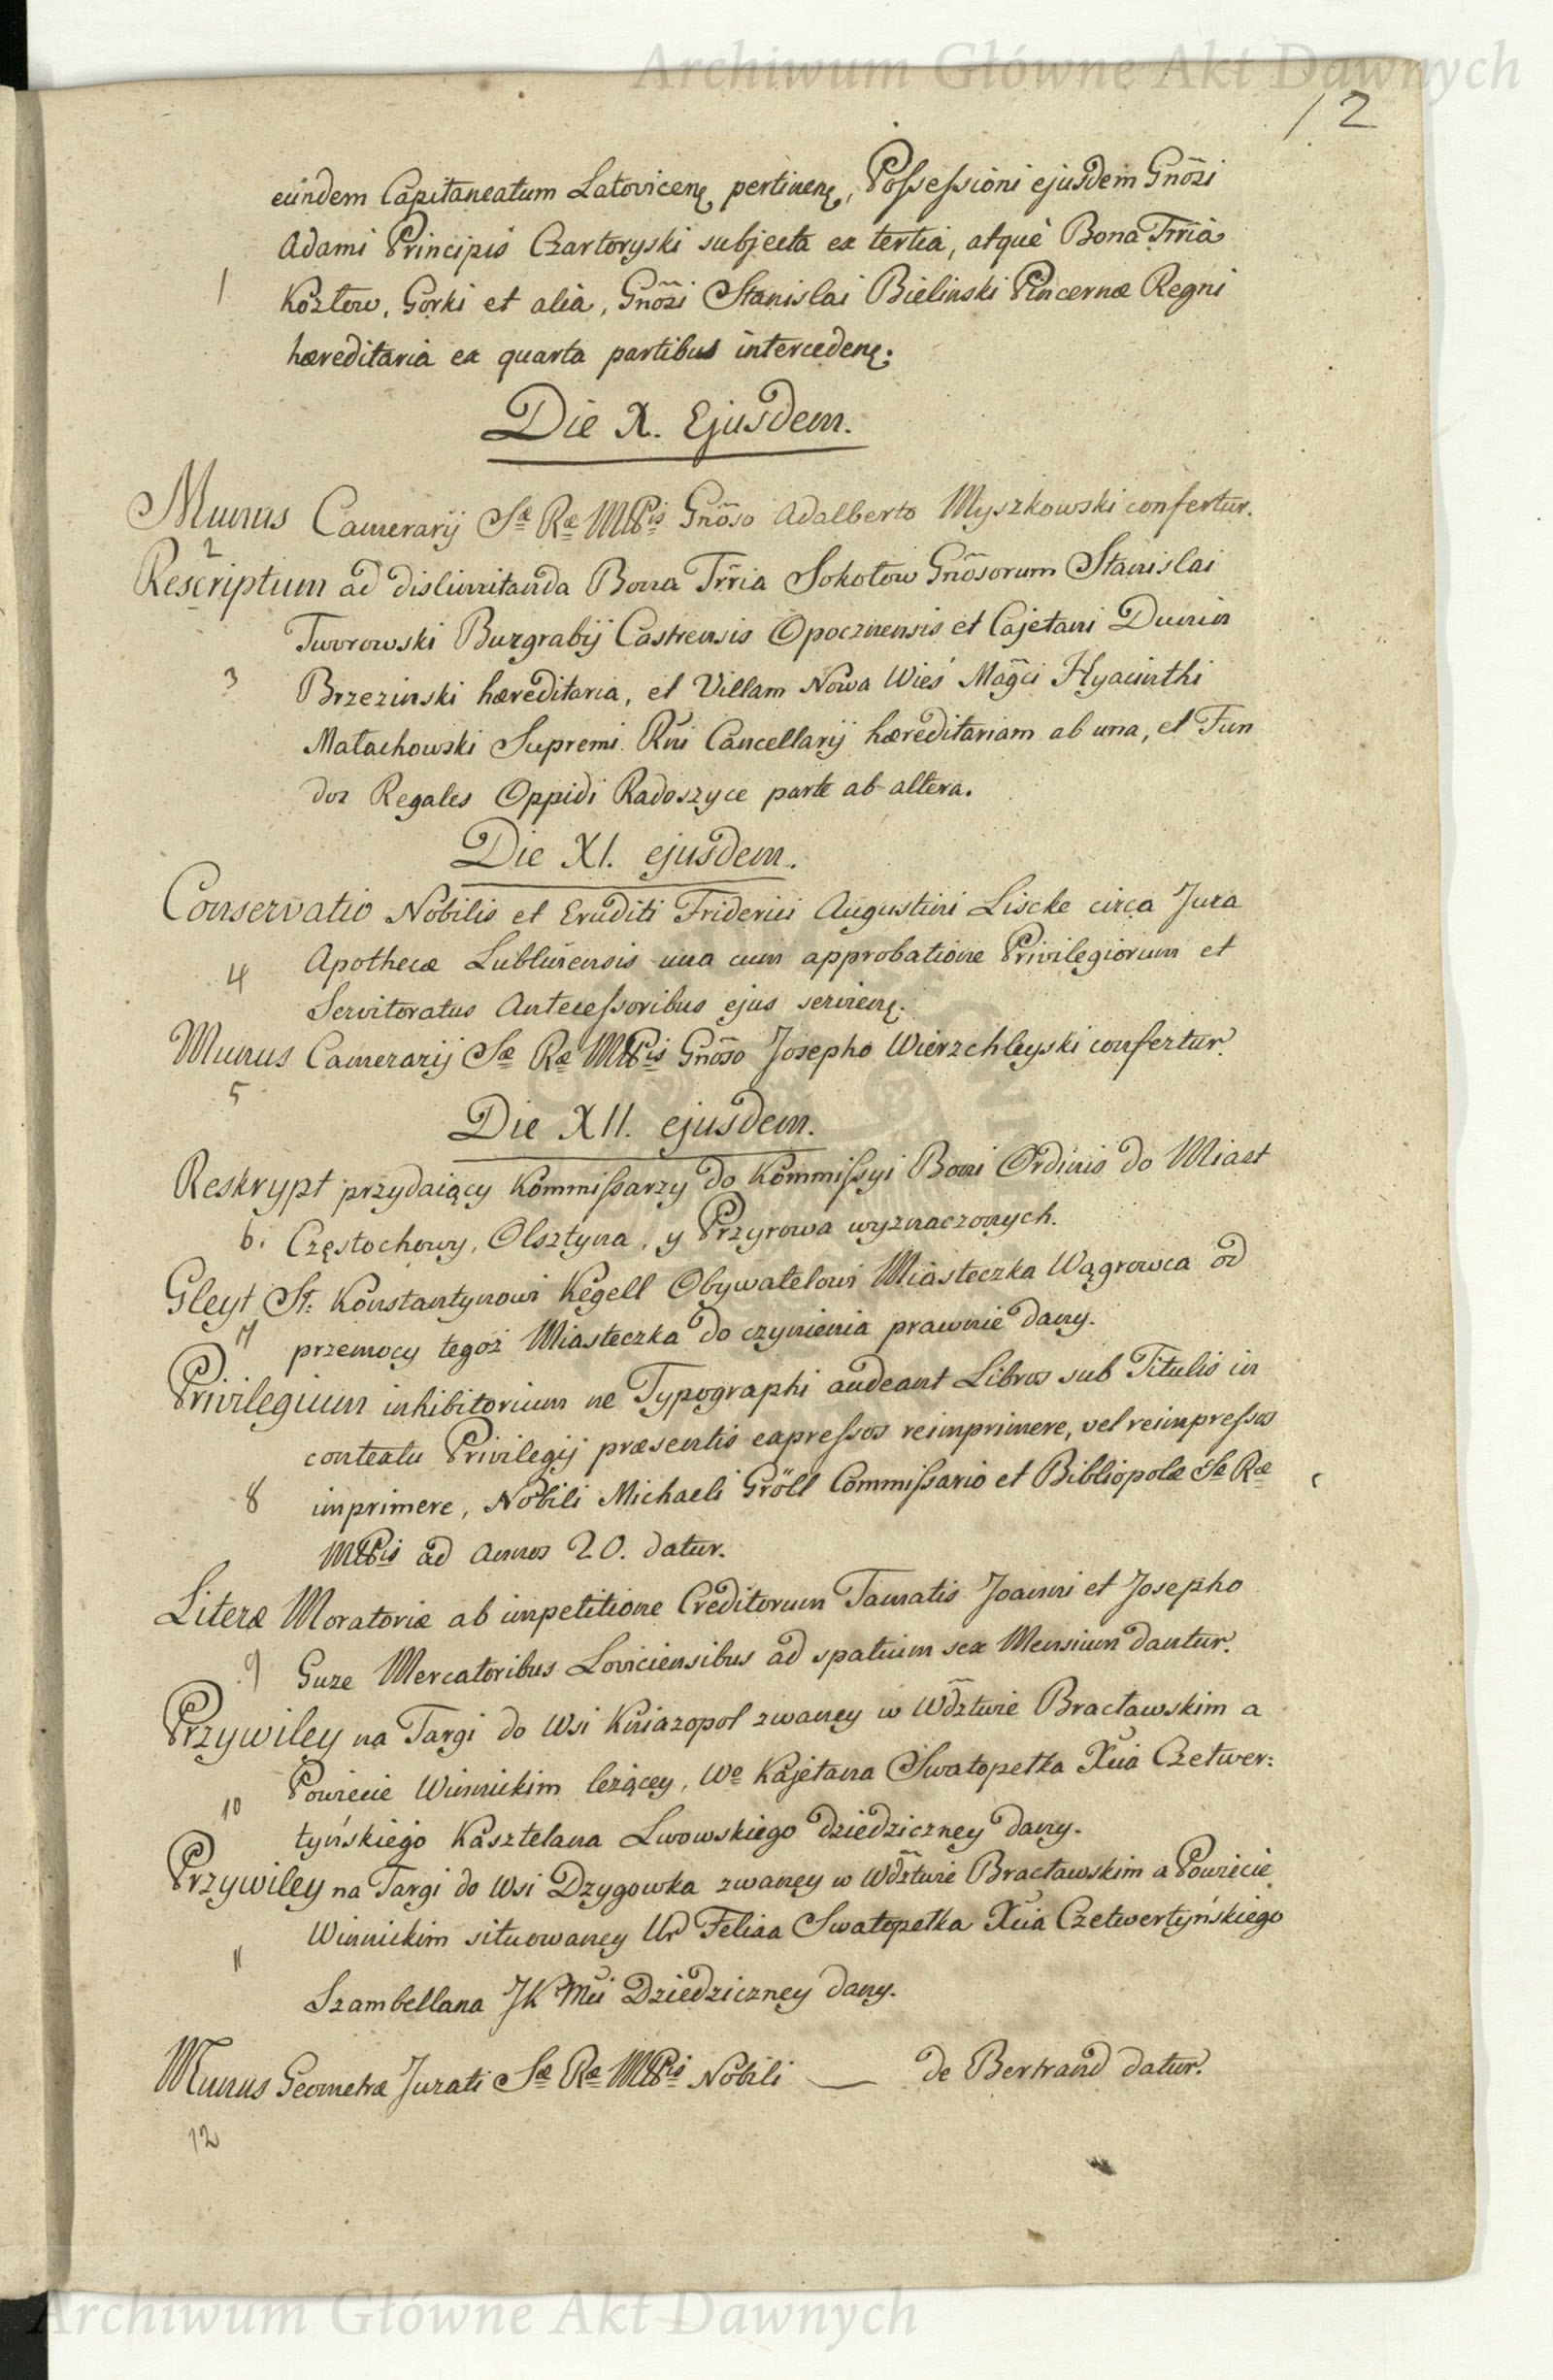 Archiwum Główne Akt Dawnych
12
eundem Capitaneatum Latovicenę pertinenę, Possessioni ejusdem Gnõsi
Adami Principis Czartoryski subjecta ex tertia, atque Bona Trria
1 Kozłow, Gorki et alia, Gnõsi Stanislai Bielinski Pincernæ Regni
hæreditaria ex quarta partibus intercedenę.
Die X. Ejusdem.
Munus Camerarij Sæ Ræ Mttis Gnõso Adalberto Myszkowski confertur.
2
Rescriptum ad dislimitanda Bona Trria Sokołow Gnõsorum Stanislai
Tworowski Burgrabij Castrensis Opocznensis et Cajetani Dunin
3 Brzezinski hæreditaria, et Villam Nowa Wieś Magci Hyacinthi
Małachowski Supremi Rni Cancellarij hæreditariam ab una, et Fun
dos Regales Oppidi Radoszyce parte ab altera.
Die XI. ejusdem.
Conservatio Nobilis et Eruditi Friderici Augustini Liscke circa Jura
4 Apothecæ Lublinensis una cum approbatione Privilegiorum et
Servitoratus Antecessoribus ejus servienę.
Munus Camerarij Sæ Ræ Mttis Gnõso Josepho Wierzchleyski confertur.
5
Die XII. ejusdem.
Reskrypt przydaiący Kommissarzy do Kommissyi Boni Ordinis do Miast
6. Częstochowy, Olsztyna, y Przyrowa wyznaczonych.
Gleyt St: Konstantynowi Kegell Obywatelowi Miasteczka Wągrowca od
7 przemocy tegoż Miasteczka do czynienia prawnie dany.
Privilegium inhibitorium ne Typographi audeant Libros sub Titulis in
contextu Privilegij præsentis expressos reimprimere, vel reimpressos
8 imprimere, Nobili Michaeli Gröll Commissario et Bibliopolæ Sæ Ræ
Mttis ad Annos 20. datur.
Literæ Moratoriæ ab impetitione Creditorum Famatis Joanni et Josepho
9 Guze Mercatoribus Loviciensibus ad spatium sex Mensium dantur.
Przywiley na Targi do Wsi Kniazopol zwaney w Wdztwie Bracławskim a
Powiecie Winnickim leżącey, Wo Kajetana Swatopełka Xcia Czetwer:
10 tyńskiego Kasztelana Lwowskiego dziedziczney dany.
Przywiley na Targi do Wsi Dzygowka zwaney w Wdztwie Bracławskim a Powiecie
11 Winnickim situowaney Ur Felixa Swatopełka Xcia Czetwertyńskiego
Szambellana JK Mci Dziedziczney dany.
Munus Geometræ Jurati Sæ Ræ Mttis Nobili — de Bertrand datur.
12
Archiwum Główne Akt Dawnych